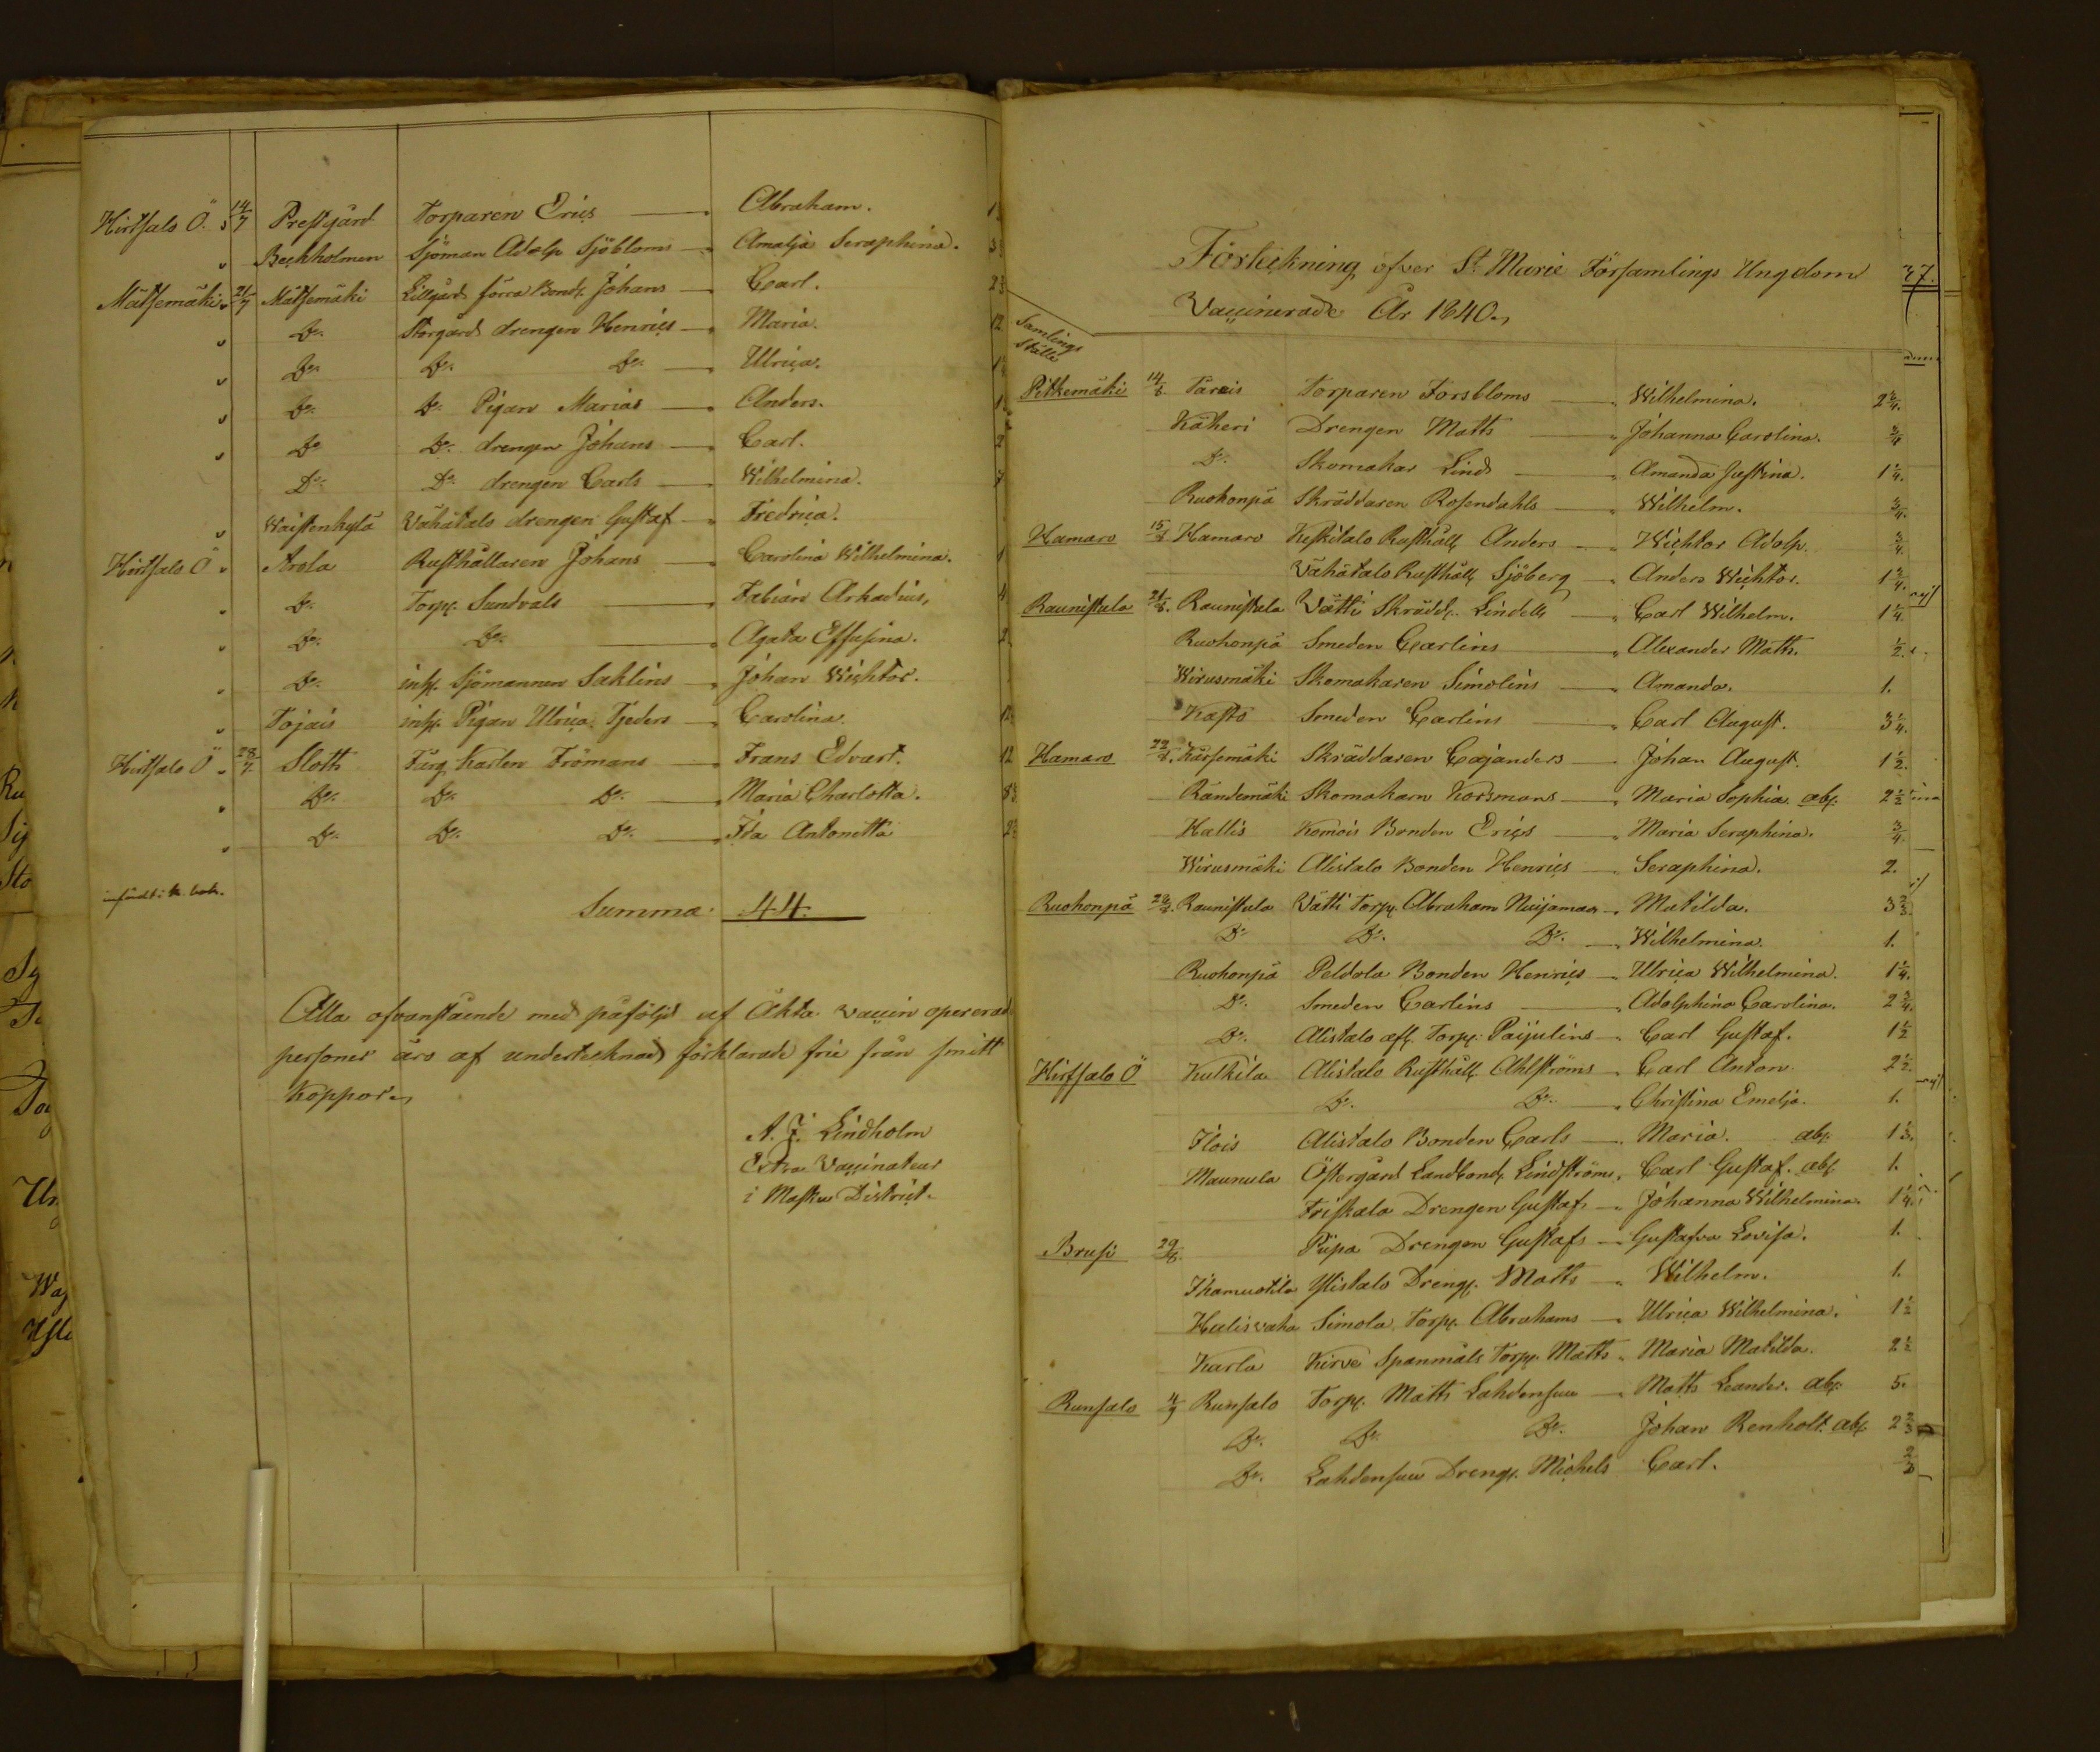 Hirfsalo Ö. 14/7 Prestgård Torparen Erics — Abraham.
" Beckholmen Sjöman Adolp Sjöbloms — Amalja Seraphina. 3
Mätsemäki 21/7 Mätsemäki Lillgårds förra Bond. Johans — Carl. 2
" Do Storgårds drengen Henrics — Maria. 12
" Do Do Do — Ulrica.
" Do Do Pigan Marias — Anders.
" Do Do drengen Johans — Carl. 2
Do Do drengen Carls — Wilhelmina.
" Waistenkylä Vähätalo drengen Gustaf — Fredrica.
Hirfsalo Ö " Arola Rusthållaren Johans — Carolina Wilhelmina.
" Do Torp. Sundvals — Fabian Arkadius.
" Do Do — Agata Effusina.
" Do inh. Sjömannen Saklins — Johan Wichtor.
" Tojais inh. Pigan Ulrica Tjeders — Carolina.
Hirfsalo Ö " 28/7 Sloth Färg. Karlen Frömans — Frans Edvart. 12
" Do Do Do — Maria Charlotta.
" Do Do Do — Ida Antonetta
infördt i k. bok.
Summa: 44.
Alla ofvanstående med påföljd af Äkta vaccin opererad
personer äro af undertecknad förklarade frie från smitt
koppor.
A. J. Lindholm
Extra Vaccinateur
i Masku District.
Förteckning öfver St. Marie Församlings Ungdom 27.
Vaccinerade År 1840.
Samlings
Ställe
Pitkemäki 14/8 Täreis Torparen Forsbloms — Wilhelmina. 2 3/4.
Käheri Drengen Matts — Johanna Carolina. 3/4
Do. Skomakar Linds — Amanda Justina. 1 1/4.
Ruohonpä Skräddaren Rosendahls — Wilhelm. 3/4.
Hamaro 15/8 Hamaro Keskitalo Rusthåll. Anders — Wichtor Adolp. 3/4.
Vähätalo Rusthåll. Sjöberg — Anders Wichtor. 1 3/4.
Raunistula 21/8. Raunistula Vätti Skrädd. Lindells — Carl Wilhelm. 1 1/4.
Ruohonpä Smeden Carlins — Alexander Matts. 1/2.
Wirusmäki Skomakaren Simolins — Amanda. 1.
Kasto Smeden Carlins — Carl August. 3 1/4.
Hamaro 22/8. Kärsemäki Skräddaren Cajanders — Johan August. 1 1/2.
Rändemäki Skomakarn Korsmans — Maria Sophia. abs. 2 1/2
Hallis Komois Bonden Erics — Maria Seraphina. 3/4.
Wirusmäki Alistalo Bonden Henrics — Seraphina. 2.
Ruohonpä 28/8. Raunistula Vätti Torp. Abraham Nuijamaa — Matilda. 3 2/3.
Do Do. Do. — Wilhelmina. 1.
Ruohonpä Peldola Bonden Henrics — Ulrica Wilhelmina. 1 1/4.
Do. Smeden Carlins — Adolphina Carolina. 2 3/4.
Do. Alistalo aff. Torp. Paijulins — Carl Gustaf. 1 1/2
Hirfsalo Ö Kulkila Alistalo Rusthåll. Ahlströms — Carl Anton. 2 1/2.
Do. Do. — Christina Emelja. 1.
Ilois Alistalo Bonden Carls — Maria. abs. 1 1/3.
Maunula Östergård Landbond. Lindströms — Carl Gustaf. abs. 1.
Friskala Drengen Gustafs — Johanna Wilhelmina. 1 1/4.
Brusi 29/8. Piipa Drengen Gustafs — Gustafva Lovisa. 1.
Ihamuotila Ylistalo Dreng. Matts — Wilhelm. 1.
Halisvaha Simola Torp. Abrahams — Ulrica Wilhelmina. 1 1/2
Karla Kirve Spanmåls Torp. Matts — Maria Matilda. 2 1/2
Runsalo 4/9 Runsalo Torp. Matts Lahdensuu — Matts Leander. abs. 5.
Do. Do. Do. Johan Renholt. abs. 2 2/3
Do. Lahdensuu Dreng. Michels Carl. 2/3